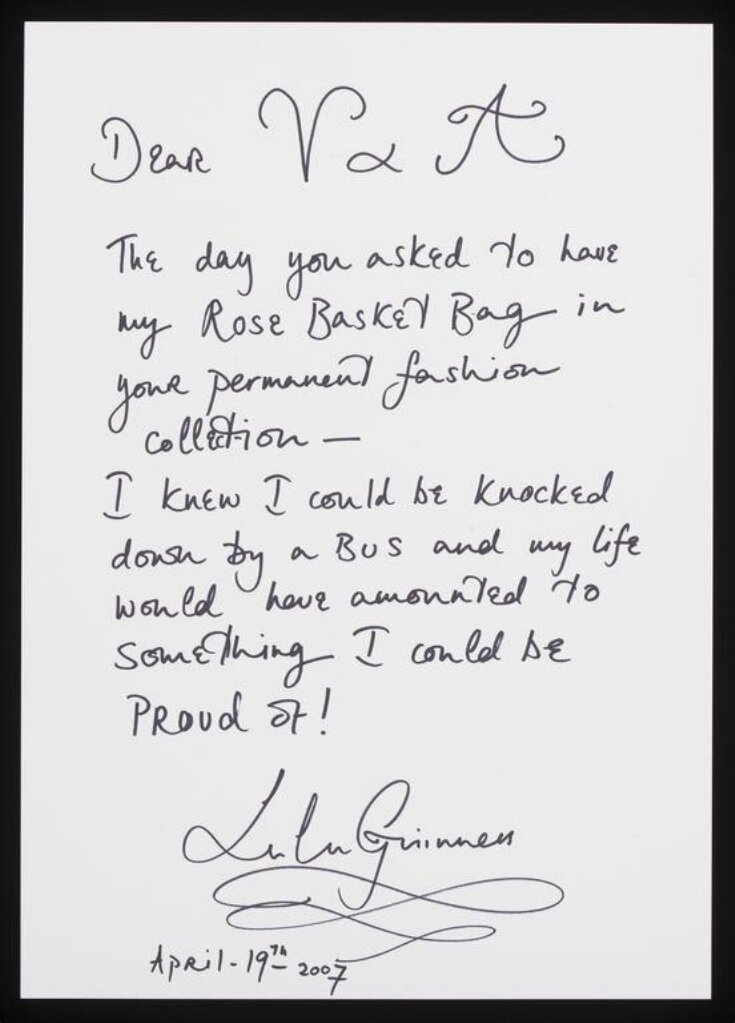 Dear V & A
The day you asked to have
my Rose Basket Bag in
your permanent fashion
colletion —
I knew I could be knocked
down by a Bus and my life
would have amounted to
something I could be
Proud of!
Lulu Guinness
April - 19th 2007